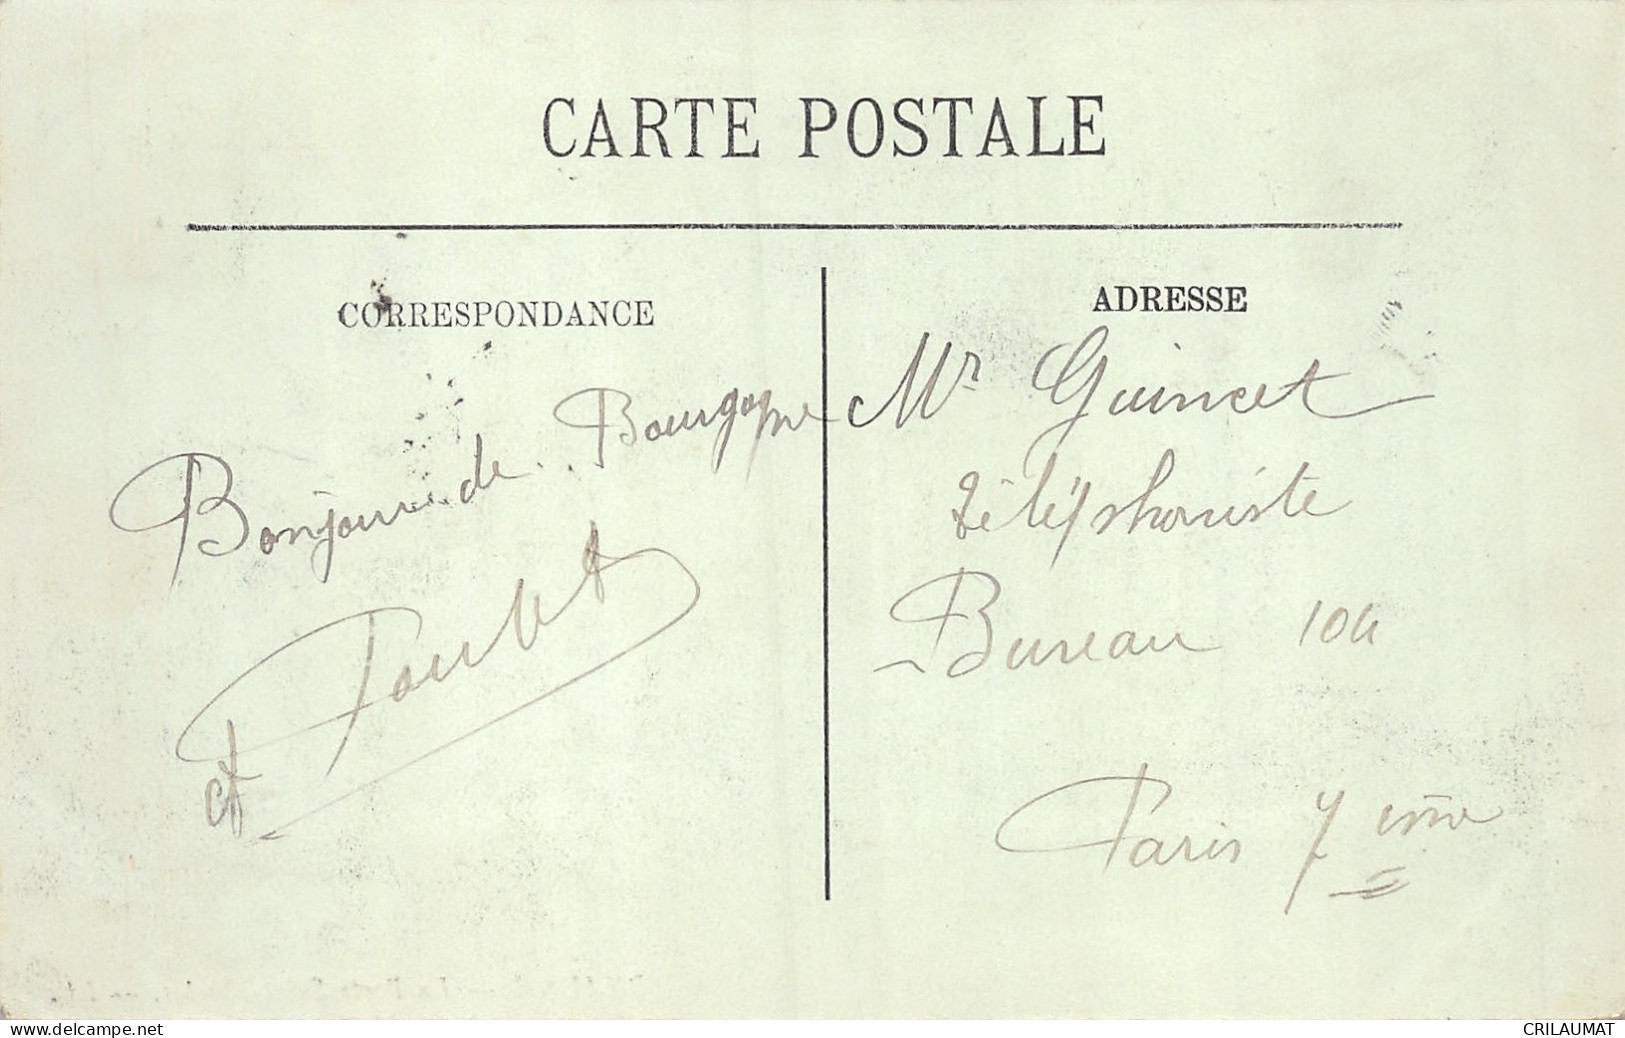 CARTE POSTALE
CORRESPONDANCE
Bonjour de Bourgogne
ADRESSE
Mr Guincet
Téléphoniste
Bureau 104
Paris 7 ème
www.delcampe.net
CRILAUMAT